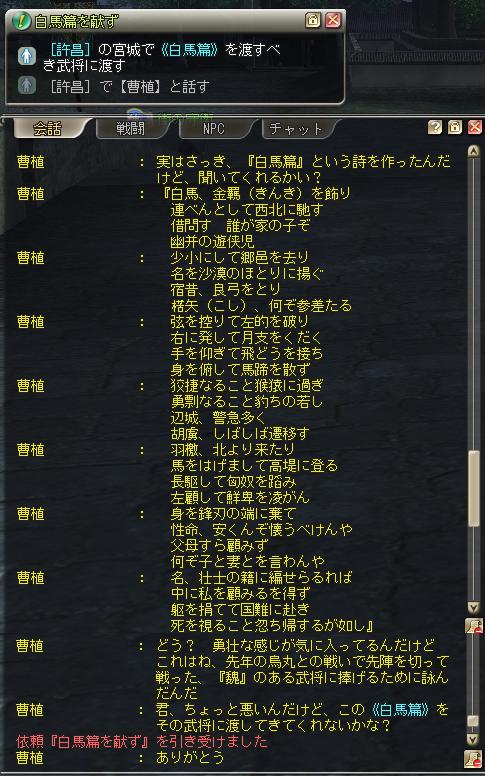 白馬篇を献ず
［許昌］の宮城で《白馬篇》を渡すべ
き武将に渡す
［許昌］で【曹植】と話す
会話 戦闘 NPC チャット
曹植 ： 実はさっき、『白馬篇』という詩を作ったんだ
けど、聞いてくれるかい？
曹植 ： 『白馬、金羈（きんき）を飾り
連べんとして西北に馳す
借問す　誰が家の子ぞ
幽并の遊侠児
曹植 ： 少小にして郷邑を去り
名を沙漠のほとりに揚ぐ
宿昔、良弓をとり
楛矢（こし）、何ぞ参差たる
曹植 ： 弦を控りて左的を破り
右に発して月支をくだく
手を仰ぎて飛どうを接ち
身を俯して馬蹄を散ず
曹植 ： 狡捷なること猴猿に過ぎ
勇剽なること豹ちの若し
辺城、警急多く
胡虜、しばしば遷移す
曹植 ： 羽檄、北より来たり
馬をはげまして高堤に登る
長駆して匈奴を蹈み
左顧して鮮卑を凌がん
曹植 ： 身を鋒刃の端に棄て
性命、安くんぞ懐うべけんや
父母すら顧みず
何ぞ子と妻とを言わんや
曹植 ： 名、壮士の籍に編せらるれば
中に私を顧みるを得ず
躯を捐てて国難に赴き
死を視ること忽ち帰するが如し』
曹植 ： どう？　勇壮な感じが気に入ってるんだけど
これはね、先年の烏丸との戦いで先陣を切って
戦った、『魏』のある武将に捧げるために詠ん
だんだ
曹植 ： 君、ちょっと悪いんだけど、この《白馬篇》を
その武将に渡してきてくれないかな？
依頼『白馬篇を献ず』を引き受けました
曹植 ： ありがとう